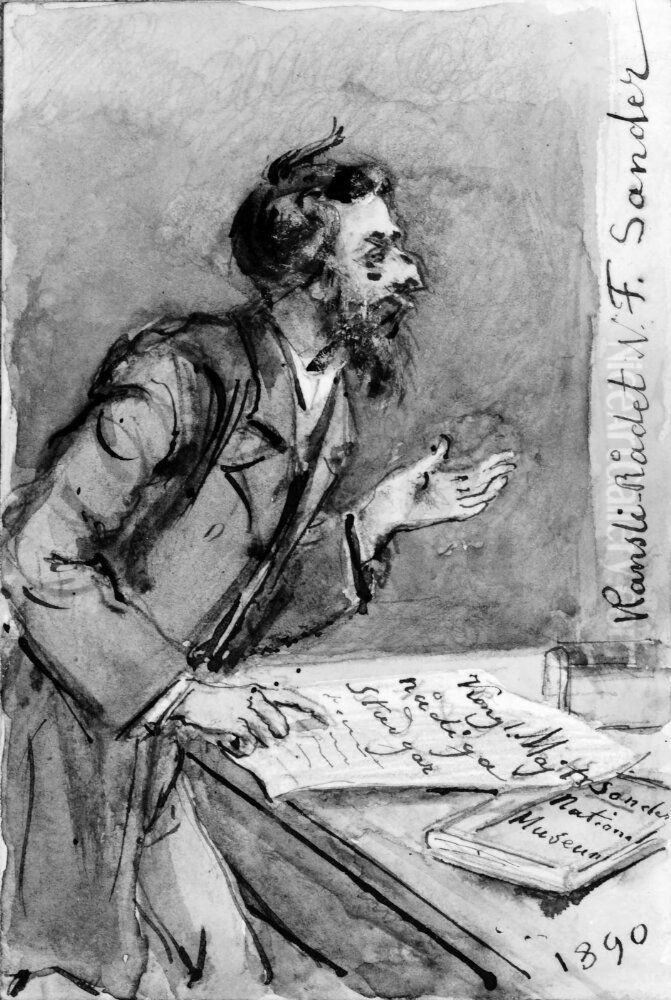 Kansli-Rådet N. F. Sander
Kongl. Maj:ts
nådiga
Stadgar
Sander
National
Museum
1890